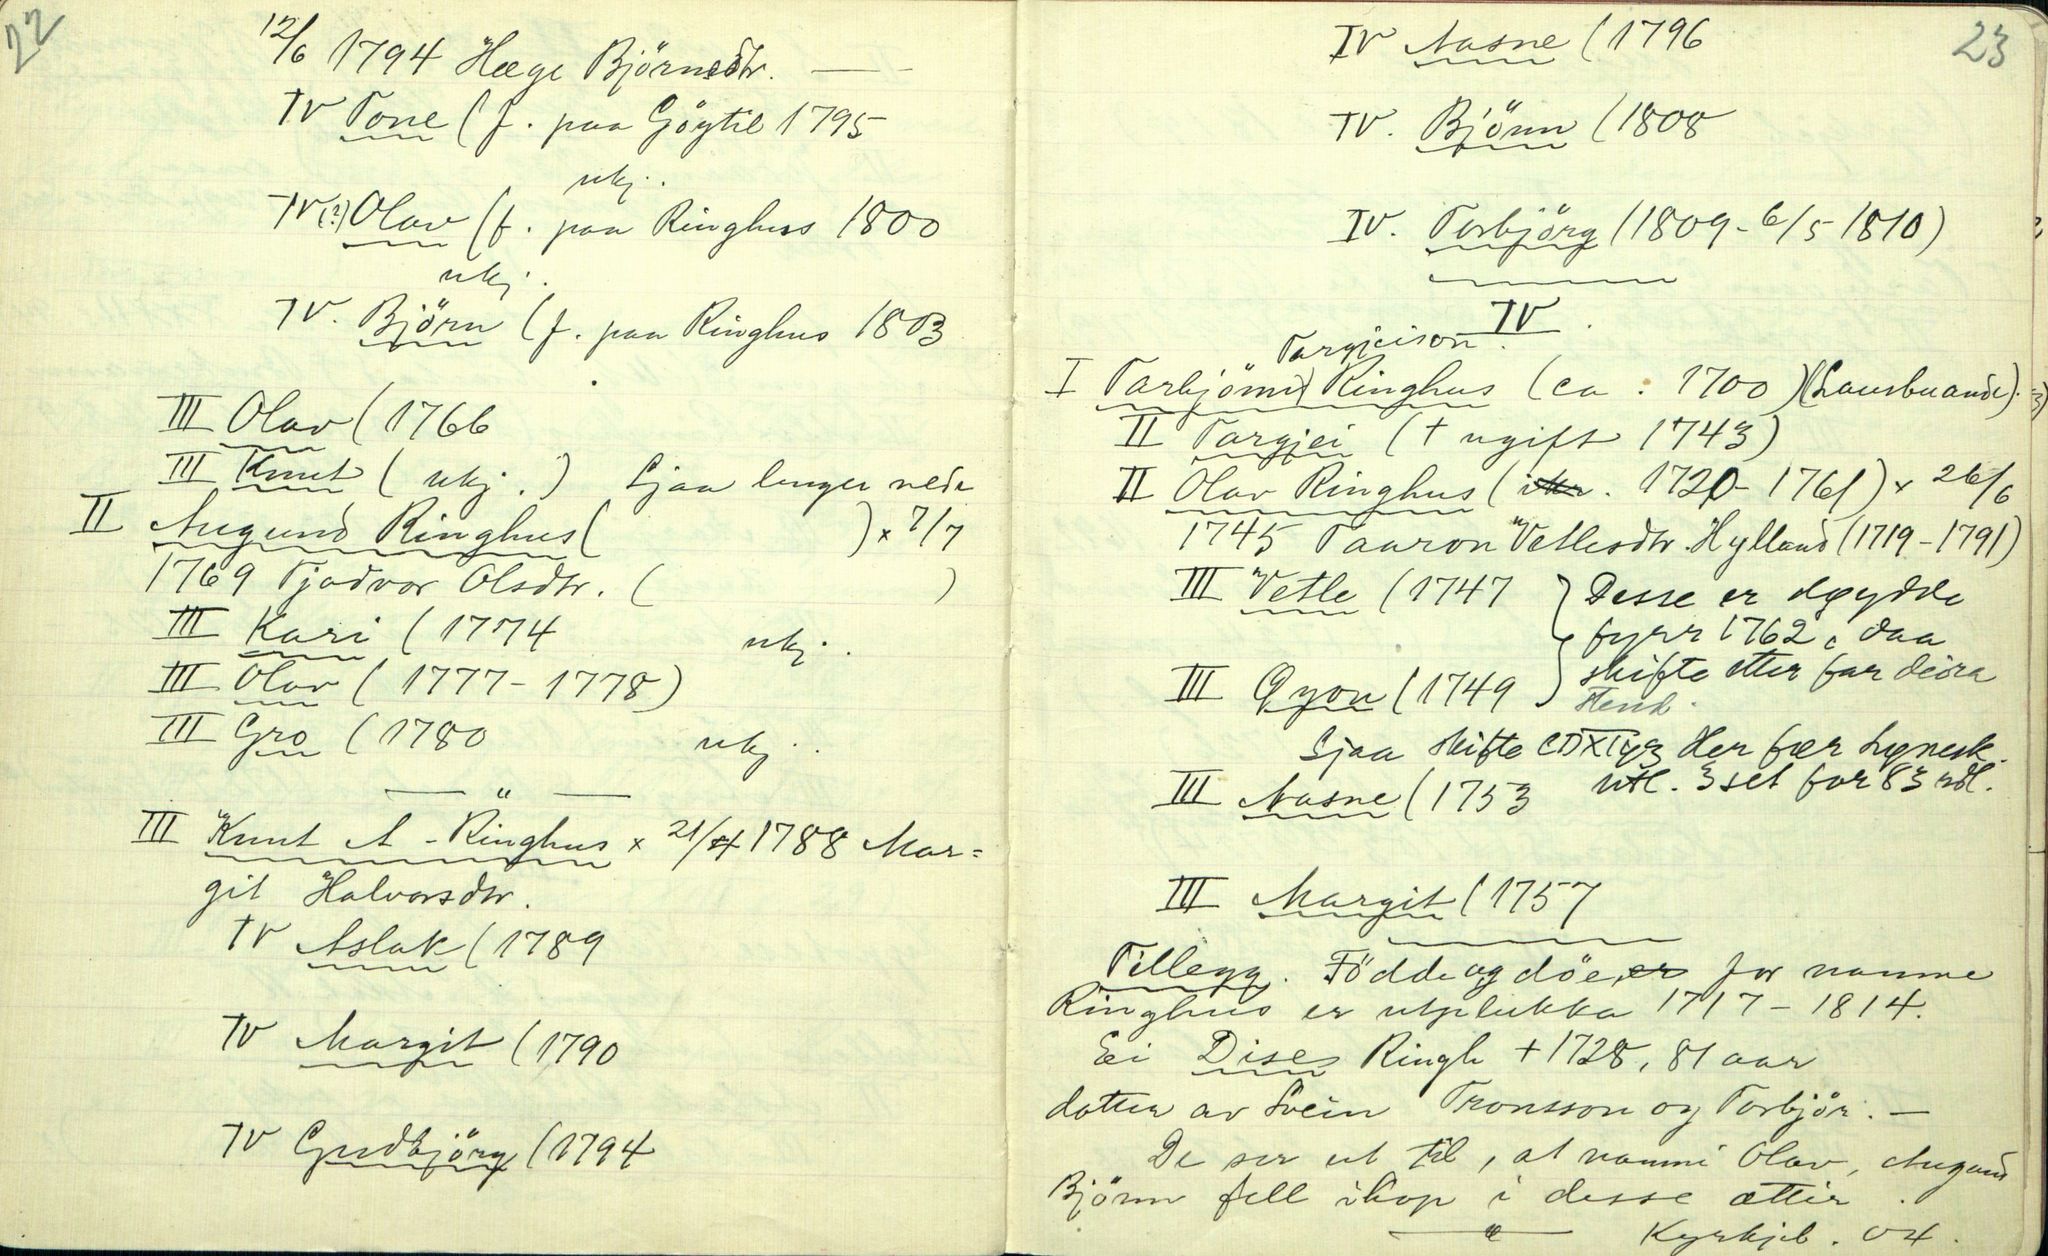 22
12/6 1794 Hæge Björnsdtr. —
IV Tone (f. paa Göytil 1795
ukj.
IV(?) Olav (f. paa Ringhus 1800
ukj.
IV. Björn (f. paa Ringhus 1803
III Olav (1766
III Knut ( ukj. ) Sjaa lenger nede
II Augund Ringhus ( ) × 7/7
1769 Tjodvor Olsdtr. ( )
III Kari (1774 ukj.
III Olav (1777 - 1778)
III Gro (1780 ukj.
— " —
III Knut A - Ringhus × 21/4 1788 Mar=
git Halvorsdtr.
IV Aslak (1789
IV Margit (1790
IV Gudbjörg (1794
23
IV Aasne (1796
IV. Björn (1808
IV. Torbjörg (1809 - 6/5 1810)
IV.
Targjeison.
I Tarbjörn) Ringhus (ca. 1700) (Lausbuande).
II Targjei († ugift 1743)
II Olav Ringhus ( 1720 - 1761) × 26/6
1745 Taaron Vetlesdtr. Hylland (1719 - 1791)
III Vetle (1747 } Desse er döydde
fyrr 1762, daa
III Gyon (1749 skifte etter far deira
stend.
Sjaa skifte CDXI Her fær
III Aasne (1753 utl. 3 set for 83 rdl.
III Margit (1757
Tillegg. Födde og döe er for namne
Ringhus er utplukka 1717 - 1814.
Ei Dises Ringh † 1728, 81 aar
dotter av Svein Tronsson og Torbjör. —
De ser ut til, at namni Olav, Augund
Björn fell ihop i desse ættir.
— " — Kyrkjeb. 04.